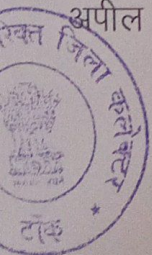 अपील
रिक्त जिला कलेक्टर
टोंक